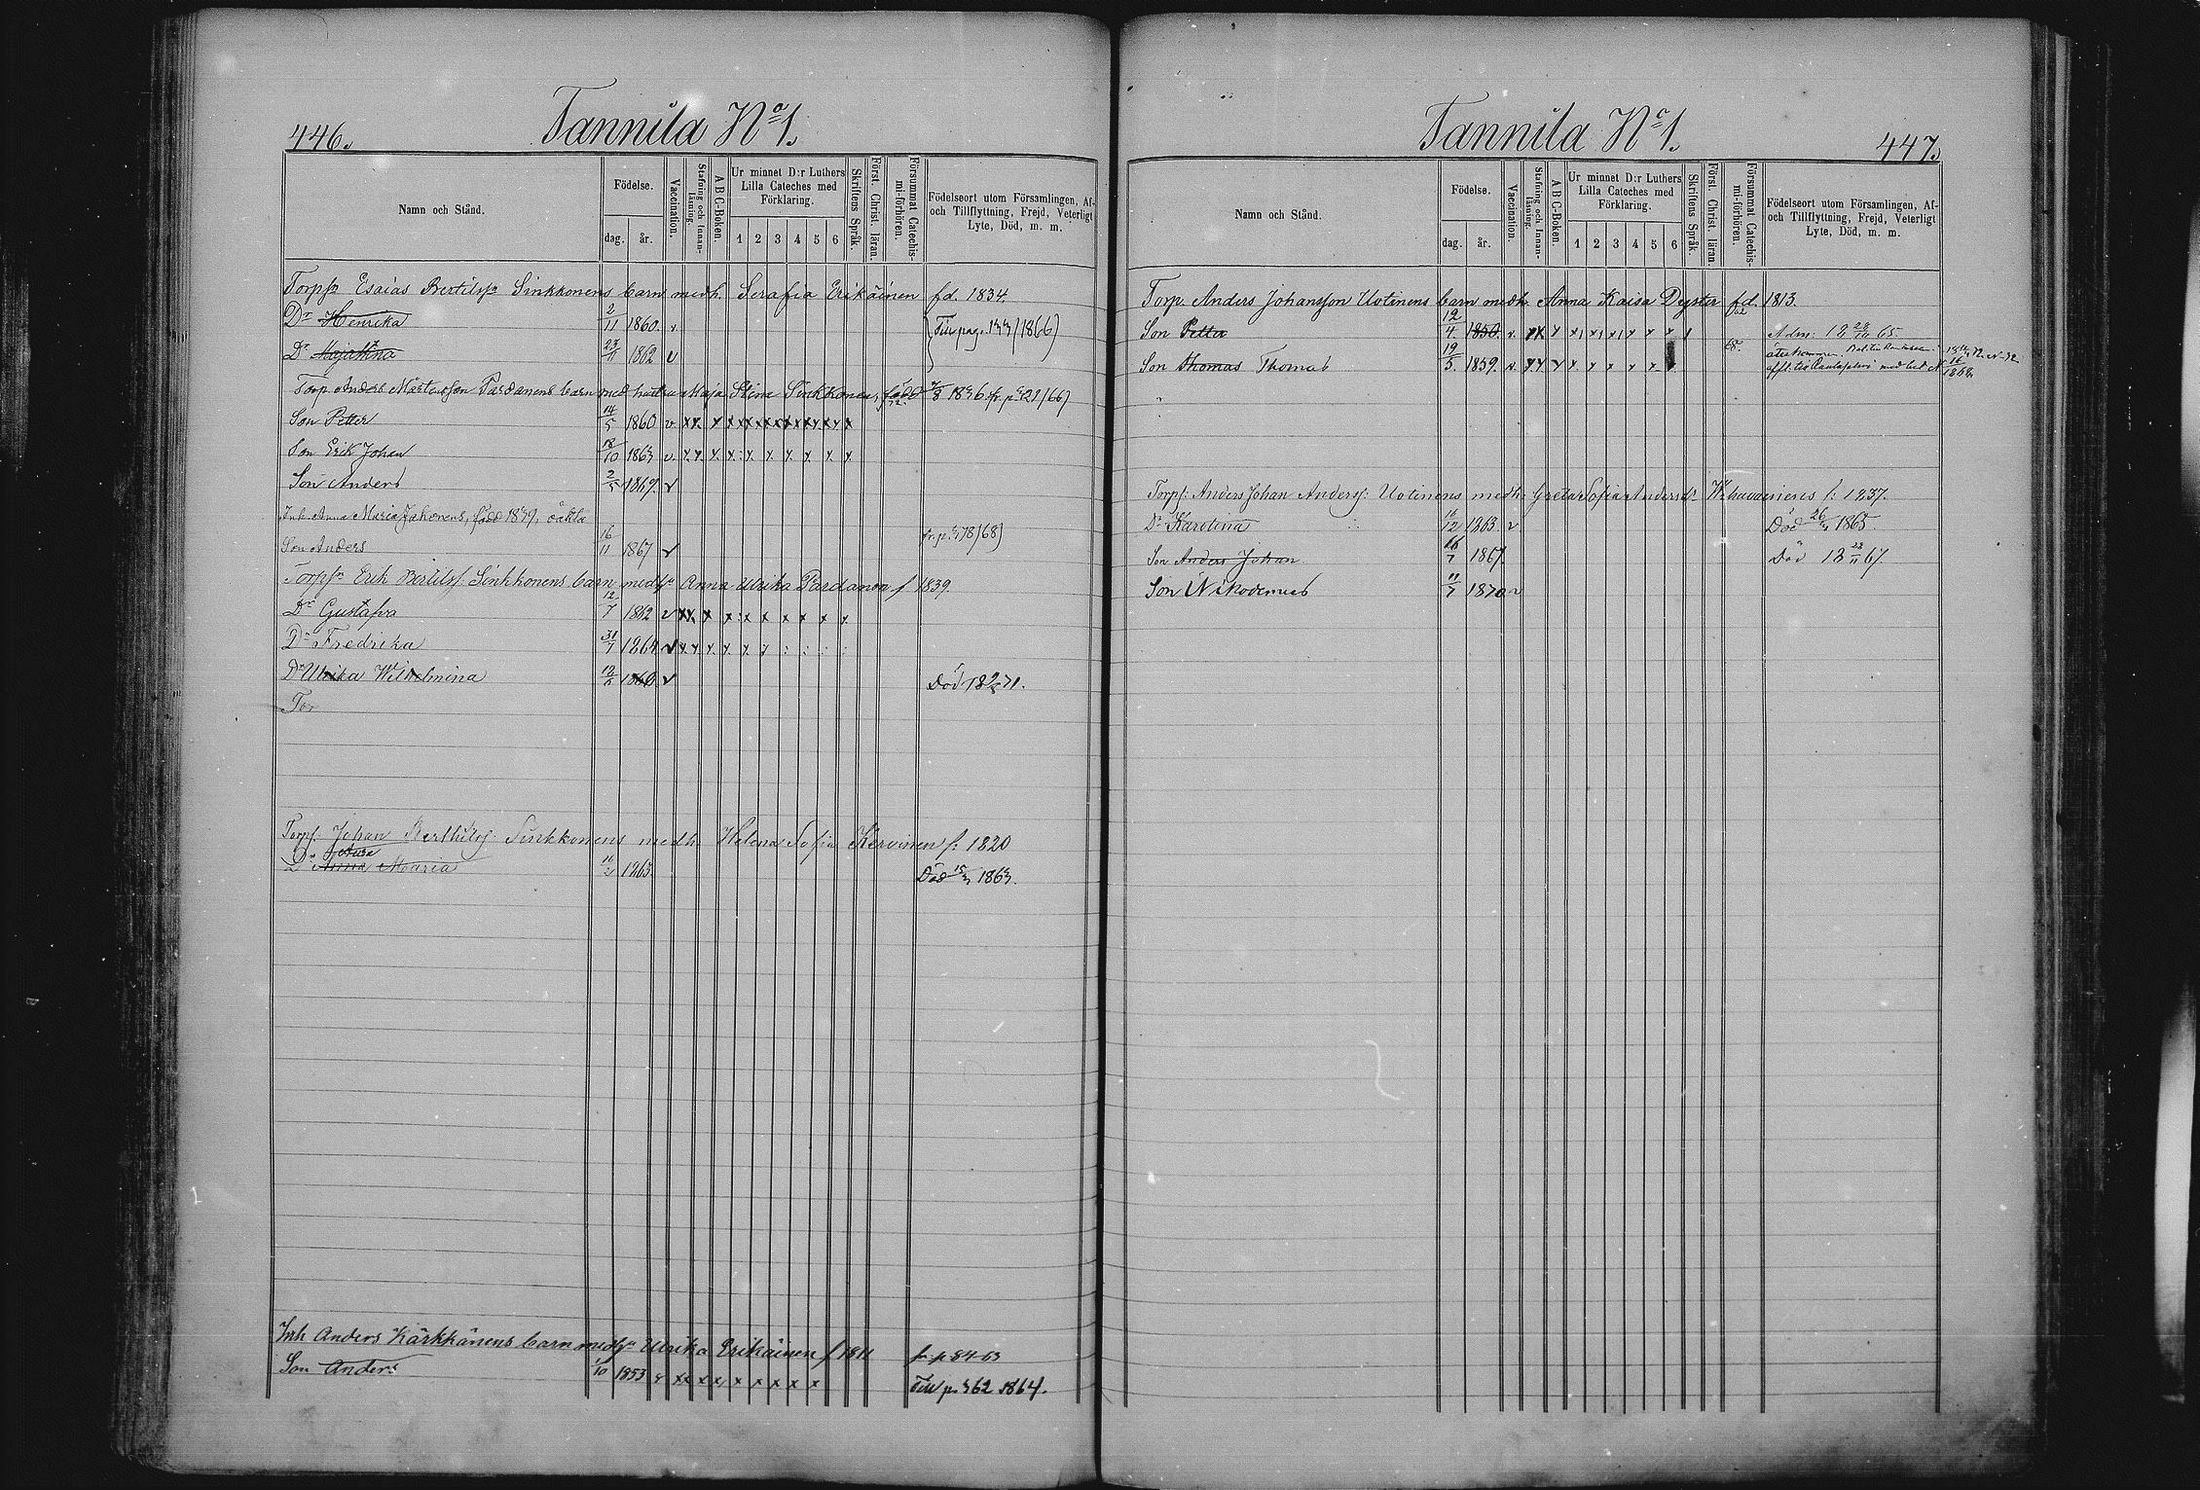 446.
Tannila No 1.
Namn och Stånd.
Födelse.
dag.
år.
Vaccination.
Stafning och Innan-läsning.
A B C-Boken.
Ur minnet D:r Luthers Lilla Cateches med Förklaring.
1 2 3 4 5 6
Skriftens Språk.
Först. Christ. läran.
Försummat Catechis-mi-förhören.
Födelseort utom Församlingen, Af-
och Tillflyttning, Frejd, Veterligt
Lyte, Död, m. m.
Torpsn Esaias Bertilssn Sinkkonens barn medh. Serafia Erikäinen fd. 1834.
Dr Henrika 2/11 1860. v.
Dr Majastina 23/11 1862 v
Torp. Anders Mårtensson Pardanens barn med hustru Maja Stina Sinkkonen, född 1836
Son Petter 14/5 1860 v x x x x x x x x x x
Son Erik Johan 18/10 1863 v. x x x x x x x x x
Son Anders 2/5 1869. v
Inh. Anna Maria Jakonens, född 1839, oäkta
Son Anders 16/11 1867 v fr. p. 378/68)
Torpsn Erik Bertilss. Sinkkonens barn medh Anna Ulrika Pardanen f 1839.
Dr Gustafva 12/7 1862 v x x x x x x x x x x
Dr Fredrika 31/7 1864 v x x x x x x
Dr Ulrika Wilhelmina 1866 v Död 71.
To
Torps. Johan Berthilss. Sinkkonens medh Helena Sofia Kervinen f. 1820
Dr Anna Maria 1863. Död 1863.
Inh Anders Kärkkänens barn medh Ulrika Erikäinen f 1811 fr p 84-63
Son Anders 1/10 1853 v x x x x x x x x x Till p. 362 1864.
Tannila No 1.
447.
Namn och Stånd.
Födelse.
dag.
år.
Vaccination.
Stafning och Innan-läsning.
A B C-Boken.
Ur minnet D:r Luthers Lilla Cateches med Förklaring.
1 2 3 4 5 6
Skriftens Språk.
Först. Christ. läran.
Försummat Catechis-mi-förhören.
Födelseort utom Församlingen, Af-
och Tillflyttning, Frejd, Veterligt
Lyte, Död, m. m.
Torp. Anders Johansson Uotinens barn medh. Anna Kaisa Dyster fd. 1813.
Son Petter 12/4. 1850. v. x x x x x x x x x Adm: 18 65
Son Thomas Thomas 19/5. 1859. v. x x x x x x x x
Torps: Anders Johan Anderss: Uotinens medh Greta Sofia Andersdr f: 1837.
Dr Karolina 1863 v Död 26 1865.
Son Anders Johan 7 1867. Död 18 22/11 67.
Son Nikodemus 11/7 1870 v